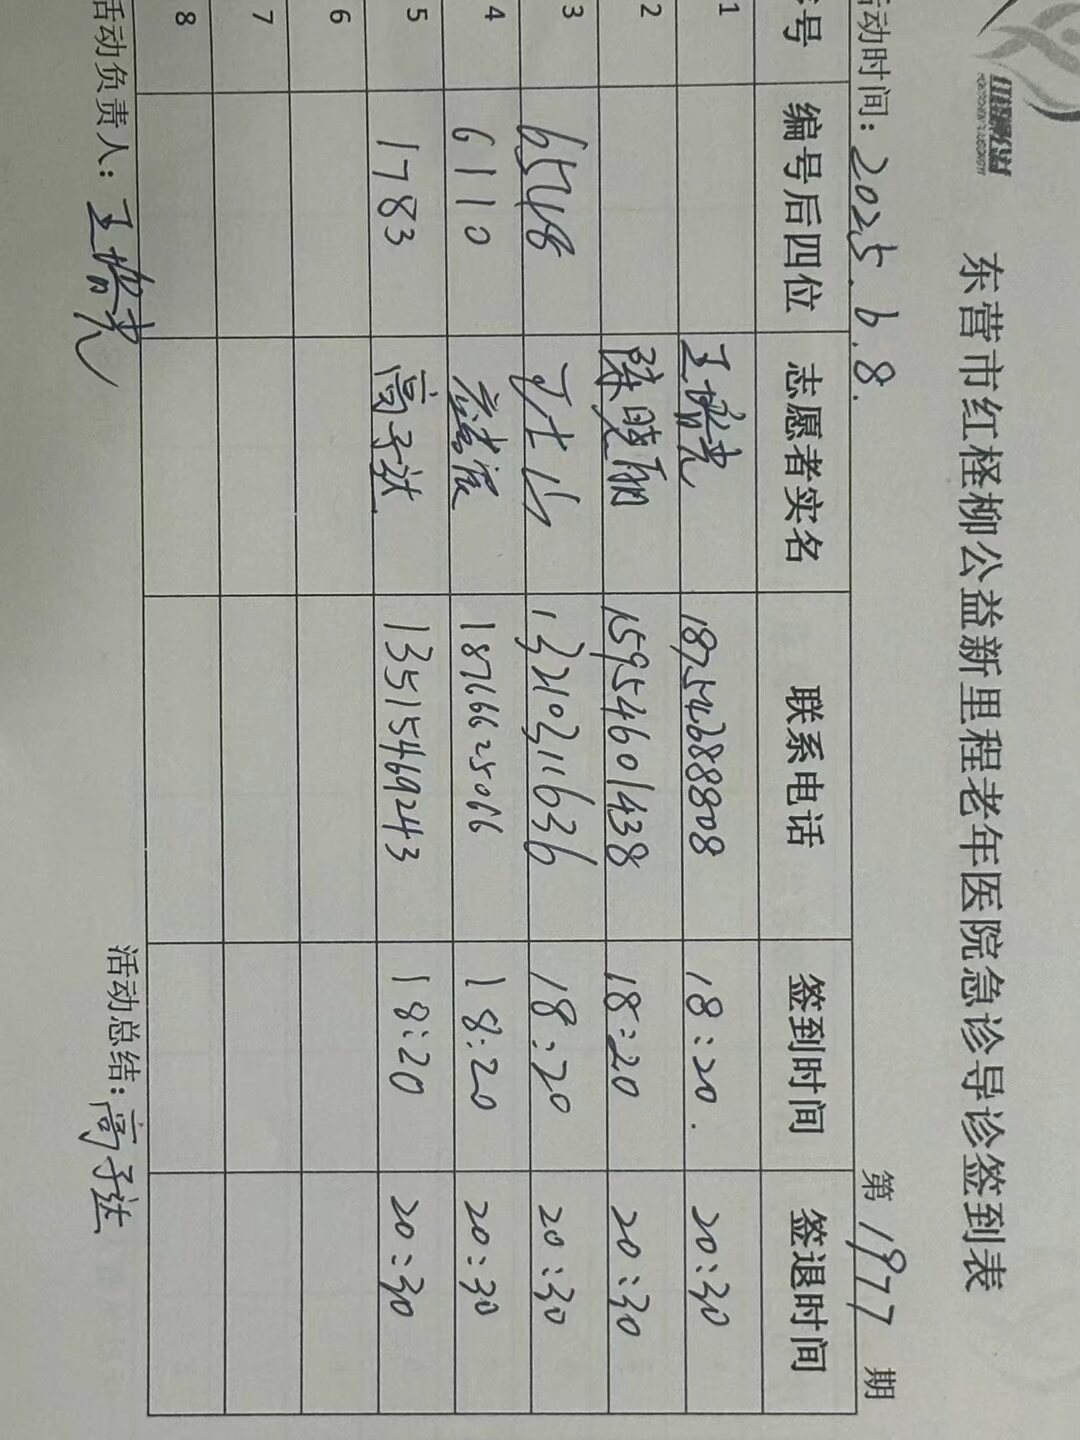 红柽柳公益
东营市红柽柳公益新里程老年医院急诊导诊签到表
活动时间: 2025.6.8. 第 1977 期
序号 编号后四位 志愿者实名 联系电话 签到时间 签退时间
1 18754688808 18:20. 20:30
2 陈晓丽 15954601438 18:20 20:30
3 6548 13210311636 18:20 20:30
4 6110 18766625066 18:20 20:30
5 1783 高子法 13515469243 18:20 20:30
6
7
8
活动负责人: 活动总结: 高子法